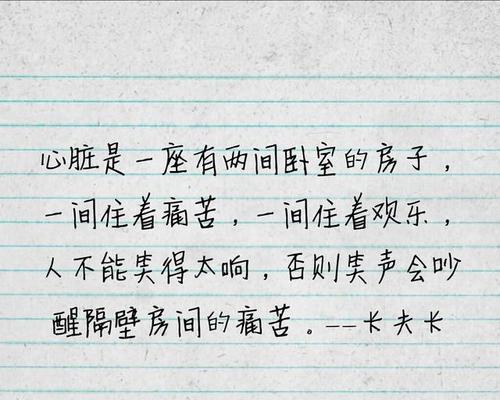 心脏是一座有两间卧室的房子，
一间住着痛苦，一间住着欢乐，
人不能笑得太响，否则笑声会吵
醒隔壁房间的痛苦。--卡夫卡